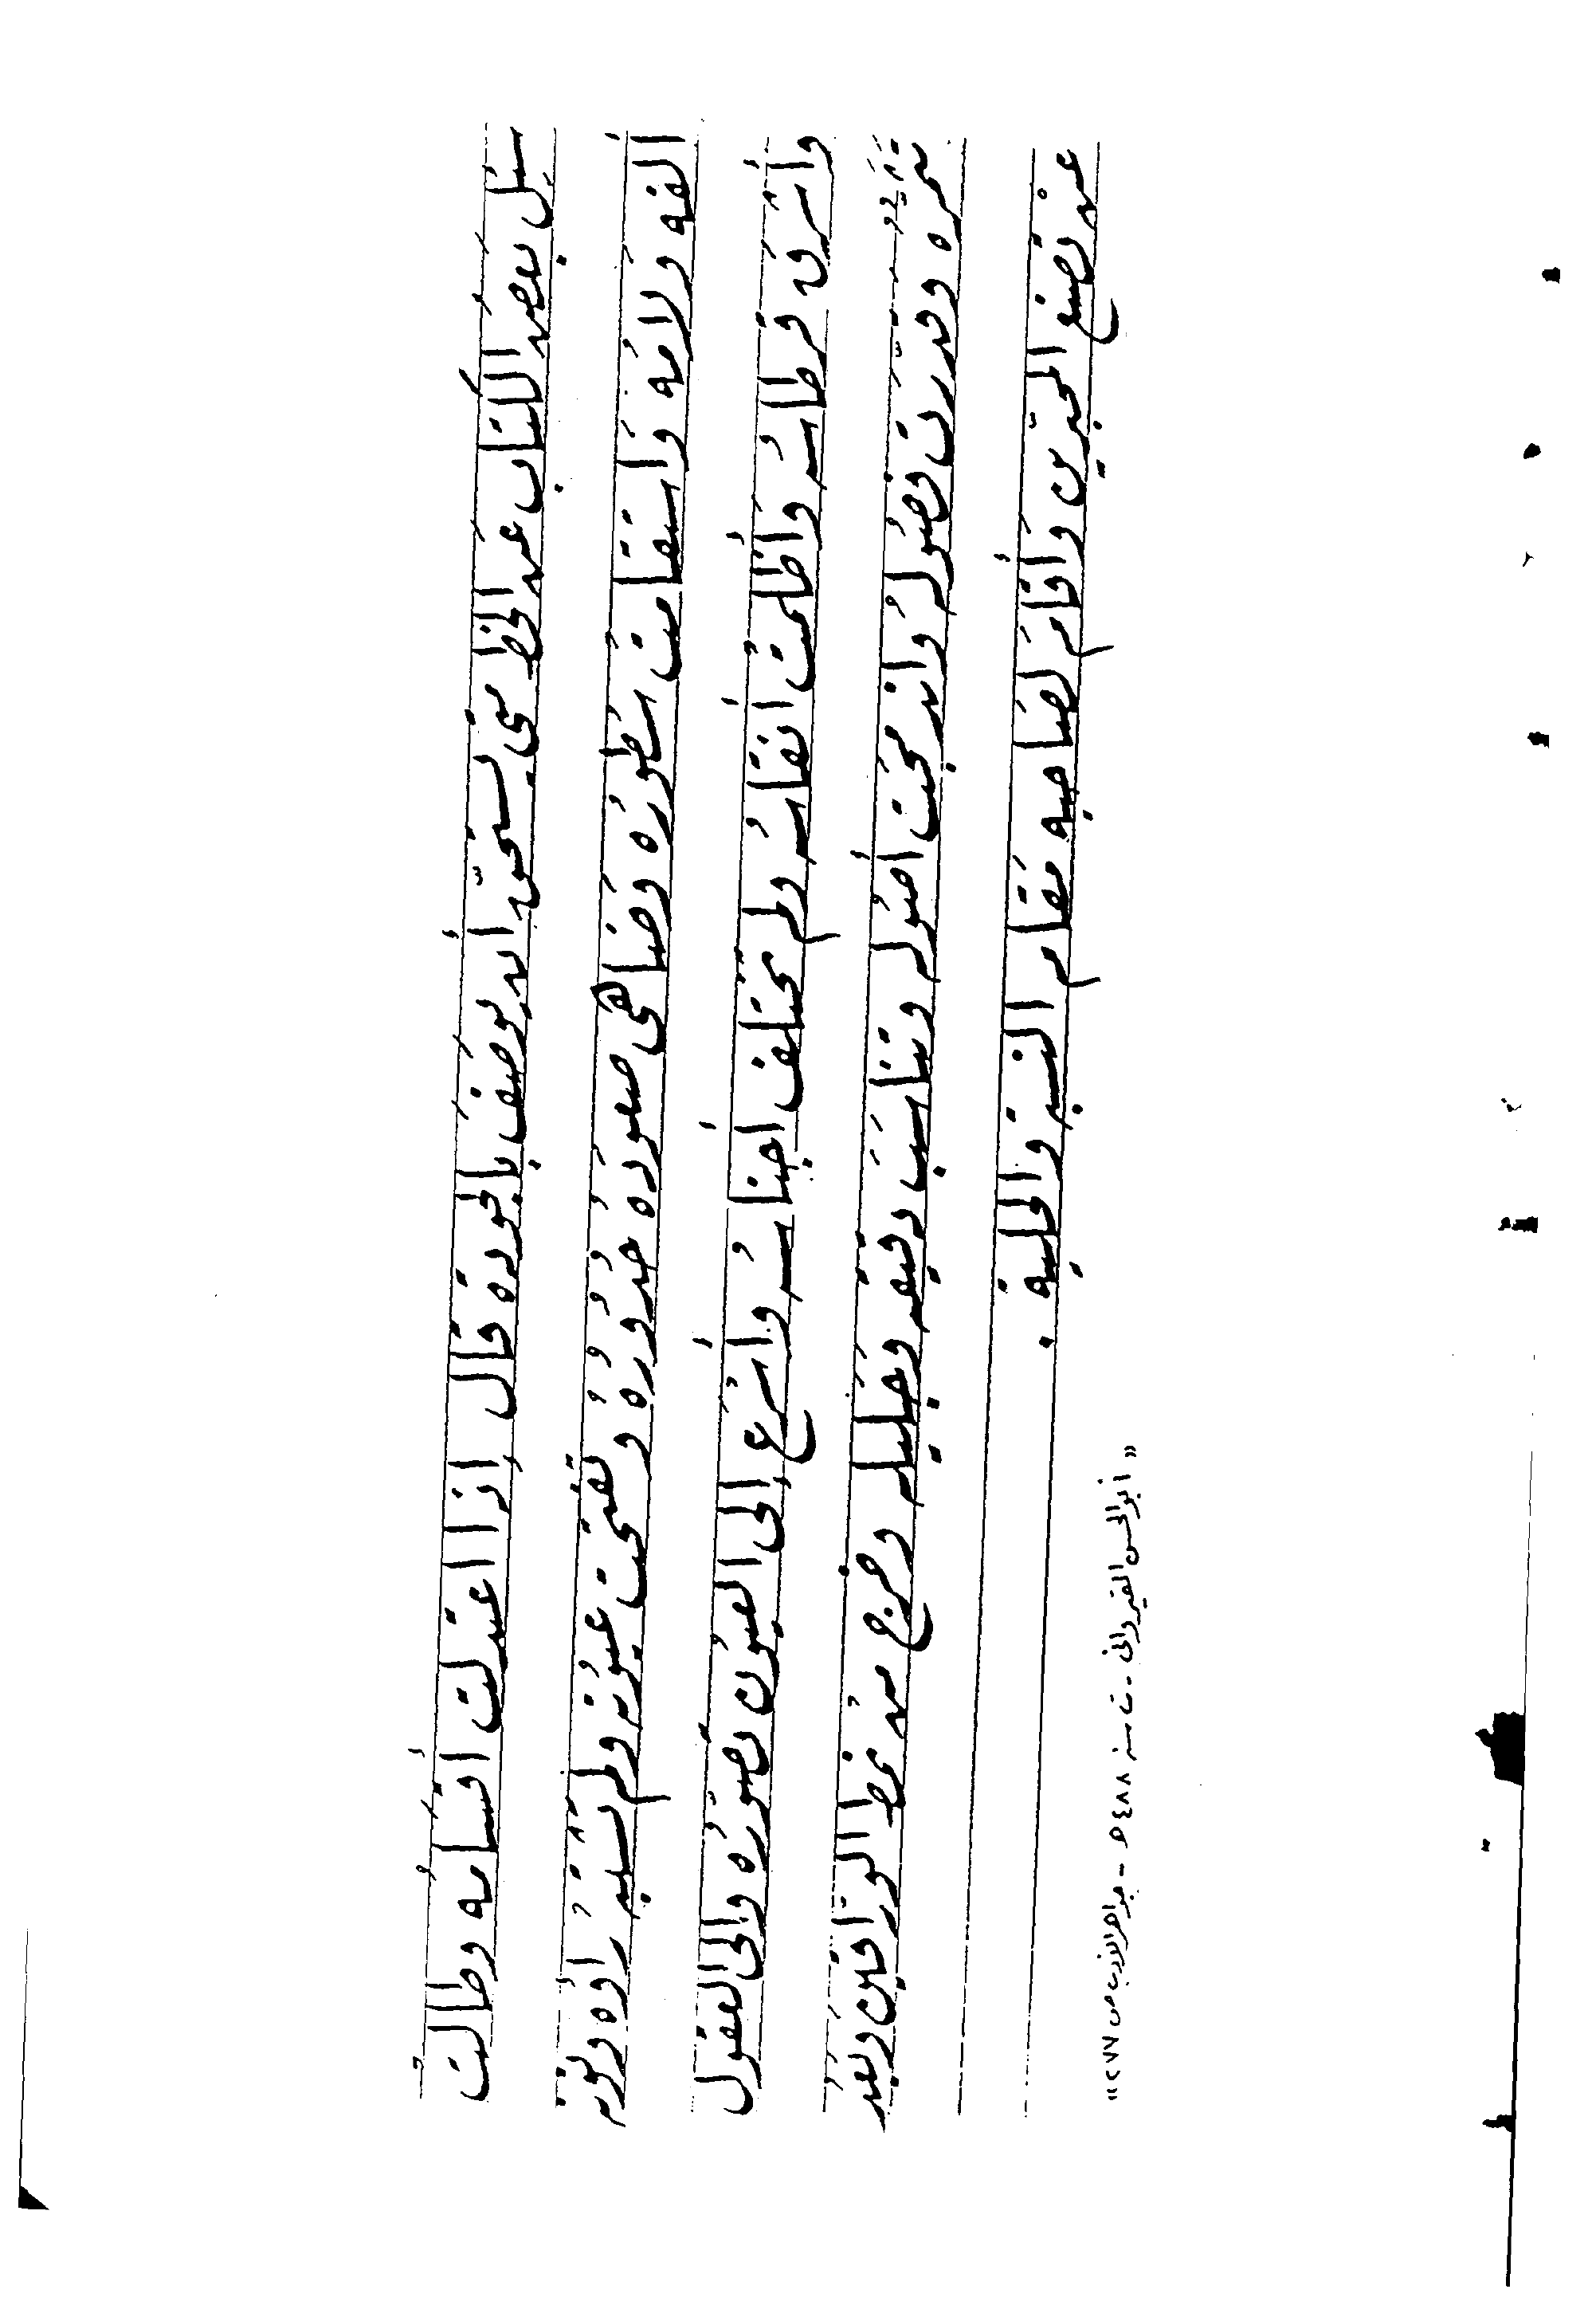 سُئِلَ بَعضُ الكُتّاب عَن الخَط مَتى يَستَحقّ أن يُوصَفَ بالجَودَة قال إذا اعتَدلَت أقسَامُه وطالَت
ألفه وَلامُه وَاستَقامَت سُطورُه وَضَاهى صعودَه حُدُورُه وَتفَتّحَت عيُونُه ولم تَشتَبه رَاؤه ونُونُه
وأشرَقَ قرطاسُه وَأظلمَت أنقَاسُه ولم تَختَلف أجنَاسُه وأسرَع إلى العيُون تَصوّرُه وإلى العقول
تَثمرُه وقدّرَت فصُولُه وَاندَمَجَت أصُولُه وتنَاسَبَ دقيقُه وَجَليلُه وخرج من نمط الورّاقين وبَعُد
عَنْ تصَنع المحبّرين وَأقامَ لصَاحبه مَقام النسبة والحلية .
« أبوالحسن القيرواني - ت سنة ٤٨٨ ه‍ - جواهر الأدب ص ٢٧٧ »